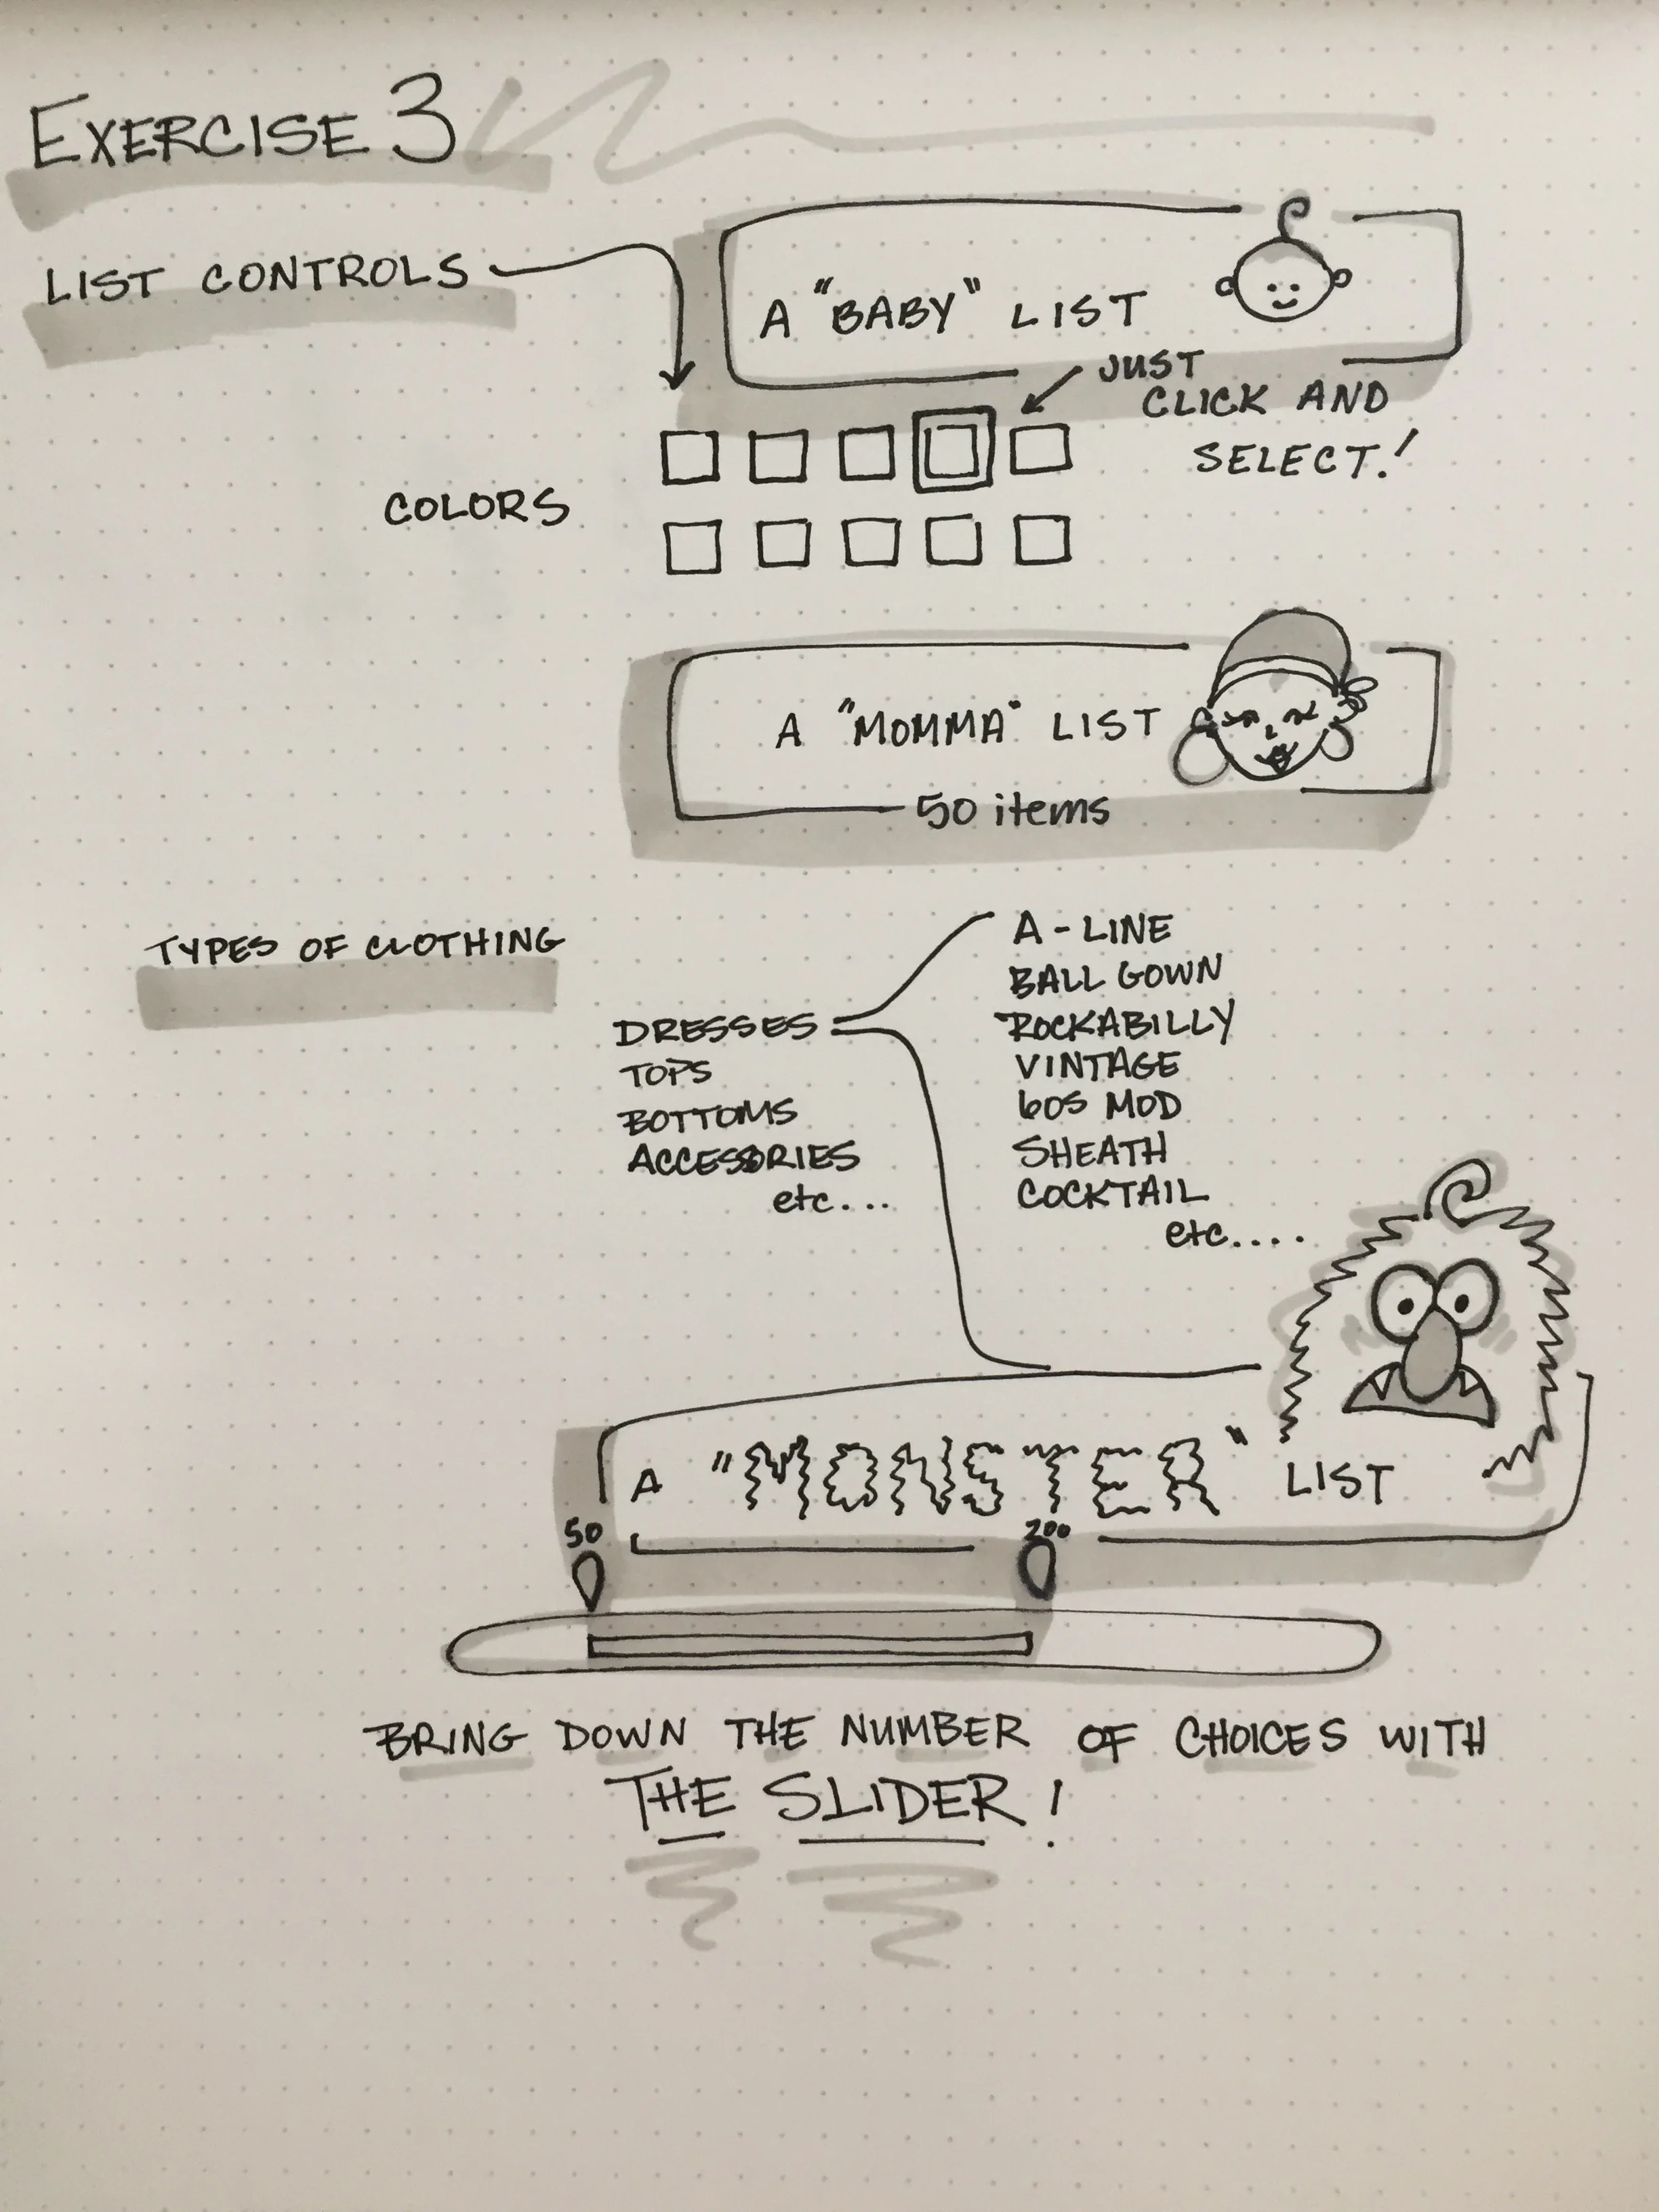 EXERCISE 3
LIST CONTROLS
A "BABY" LIST
JUST
CLICK AND
SELECT!
COLORS
A "MOMMA" LIST
50 items
TYPES OF CLOTHING
DRESSES
TOPS
BOTTOMS
ACCESSORIES
etc...
A-LINE
BALL GOWN
ROCKABILLY
VINTAGE
60S MOD
SHEATH
COCKTAIL
etc....
A "MONSTER" LIST
50 200
BRING DOWN THE NUMBER OF CHOICES WITH
THE SLIDER!